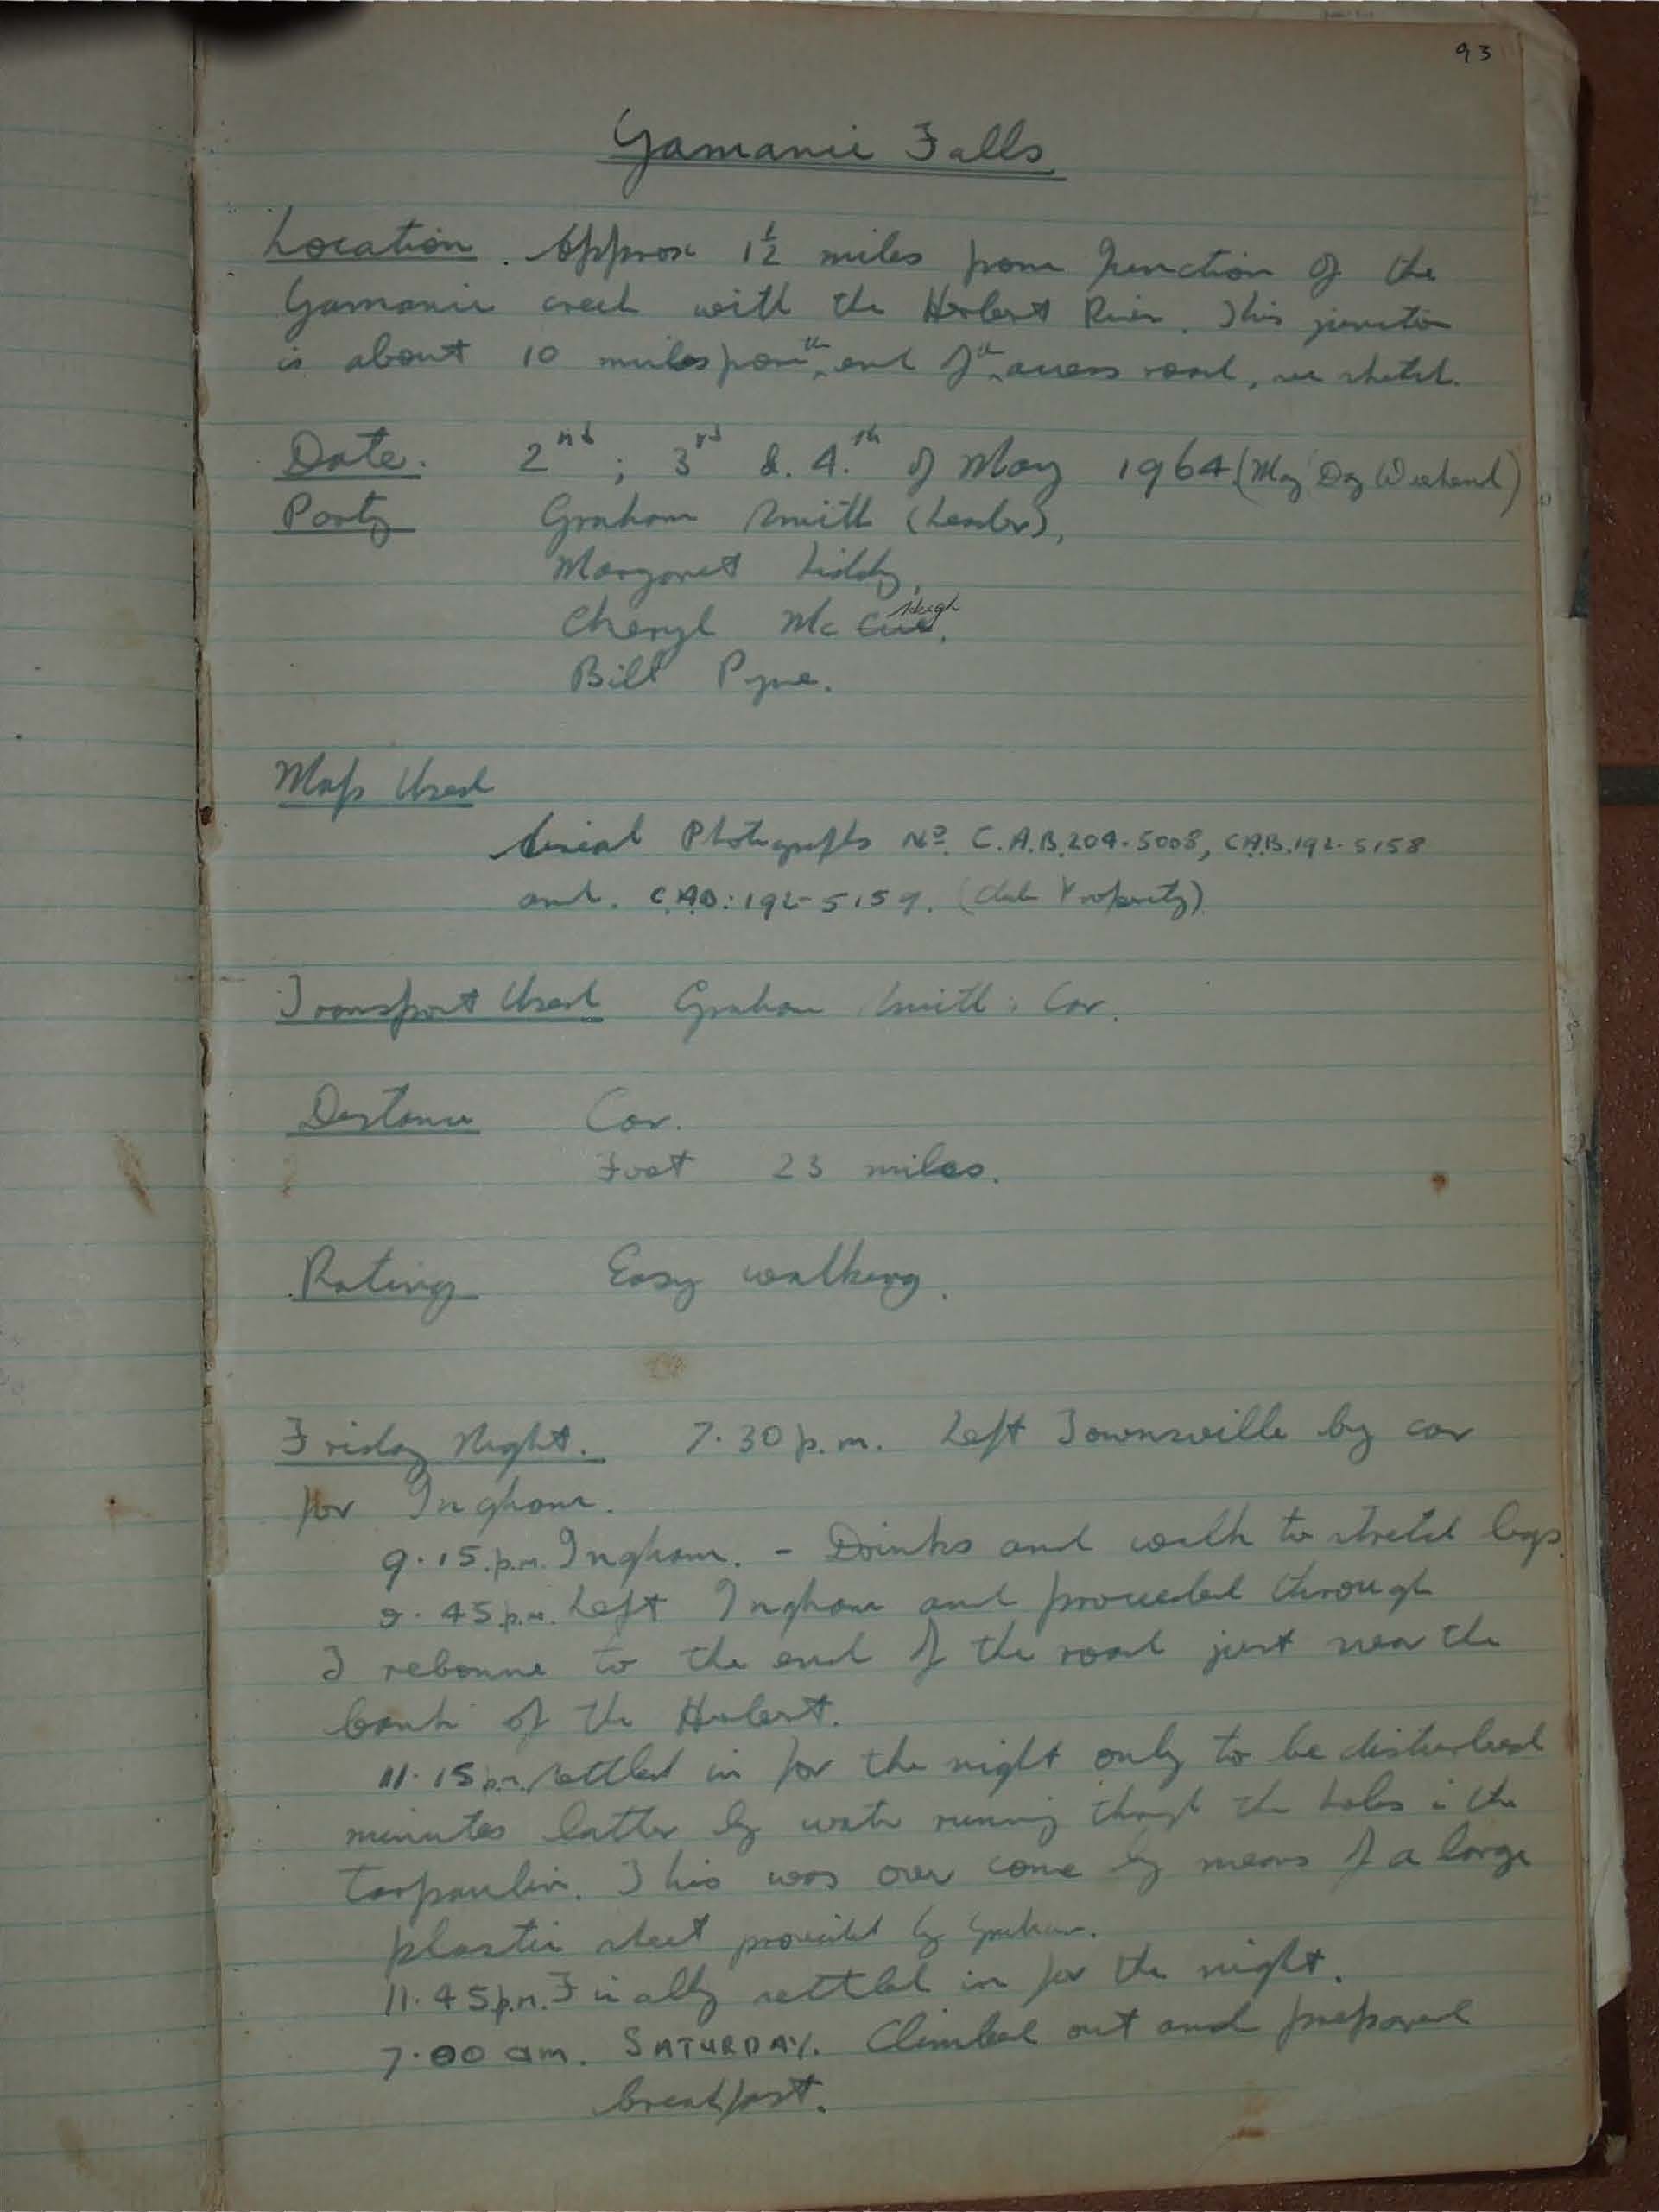 93
Yamanie Falls
Location. Approx 1½ miles from Junction of the
Yamanie creek with the Herbert River. This junction
is about 10 miles from the end of the access road, see sketch.
Date. 2nd; 3rd & 4.th of May 1964 (May Day Weekend)
Party Graham Smith (Leader),
Margaret Liddy,
Cheryl Mc Hugh.
Bill Pyne.
Maps Used
Aerial Photographs No. C.A.B.204-5008, C.A.B.192-5158
and. C.A.B:192-5159. (Club Property)
Transport Used Graham Smith's Car.
Distance Car.
Foot 23 miles.
Rating Easy walking.
Friday Night. 7.30 p.m. Left Townsville by car
for Ingham.
9.15.p.m. Ingham. - Drinks and walk to stretch legs.
9.45p.m. Left Ingham and proceeded through
Trebonne to the end of the road just near the
bank of the Herbert.
11.15p.m. settled in for the night only to be disturbed
minutes latter by water running through the holes in the
tarpaulin. This was over come by means of a large
plastic sheet provided by Graham.
11.45p.m. Finally settled in for the night.
7.00 am. SATURDAY. Climbed out and prepared
breakfast.